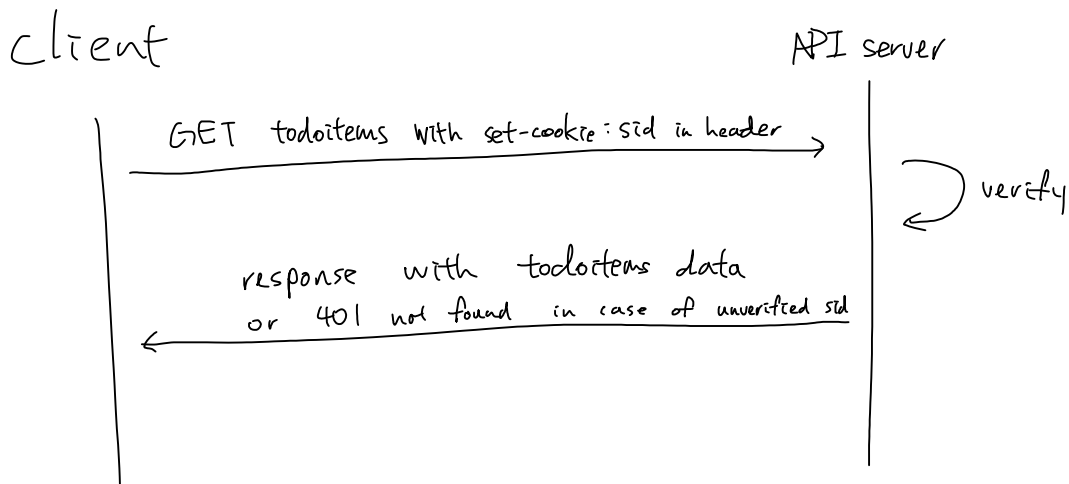 client
API server
GET todoitems with set-cookie:sid in header
verify
response with todoitems data
or 401 not found in case of unverified sid